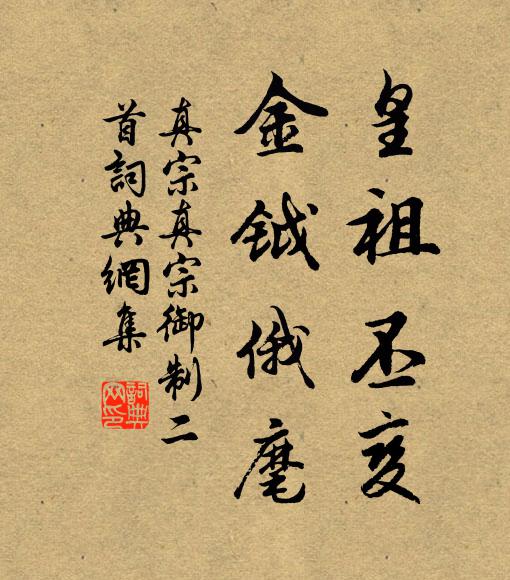 皇祖丕变
金钺俄麾
真宗真宗御制二
首詞典網集
詞典网印